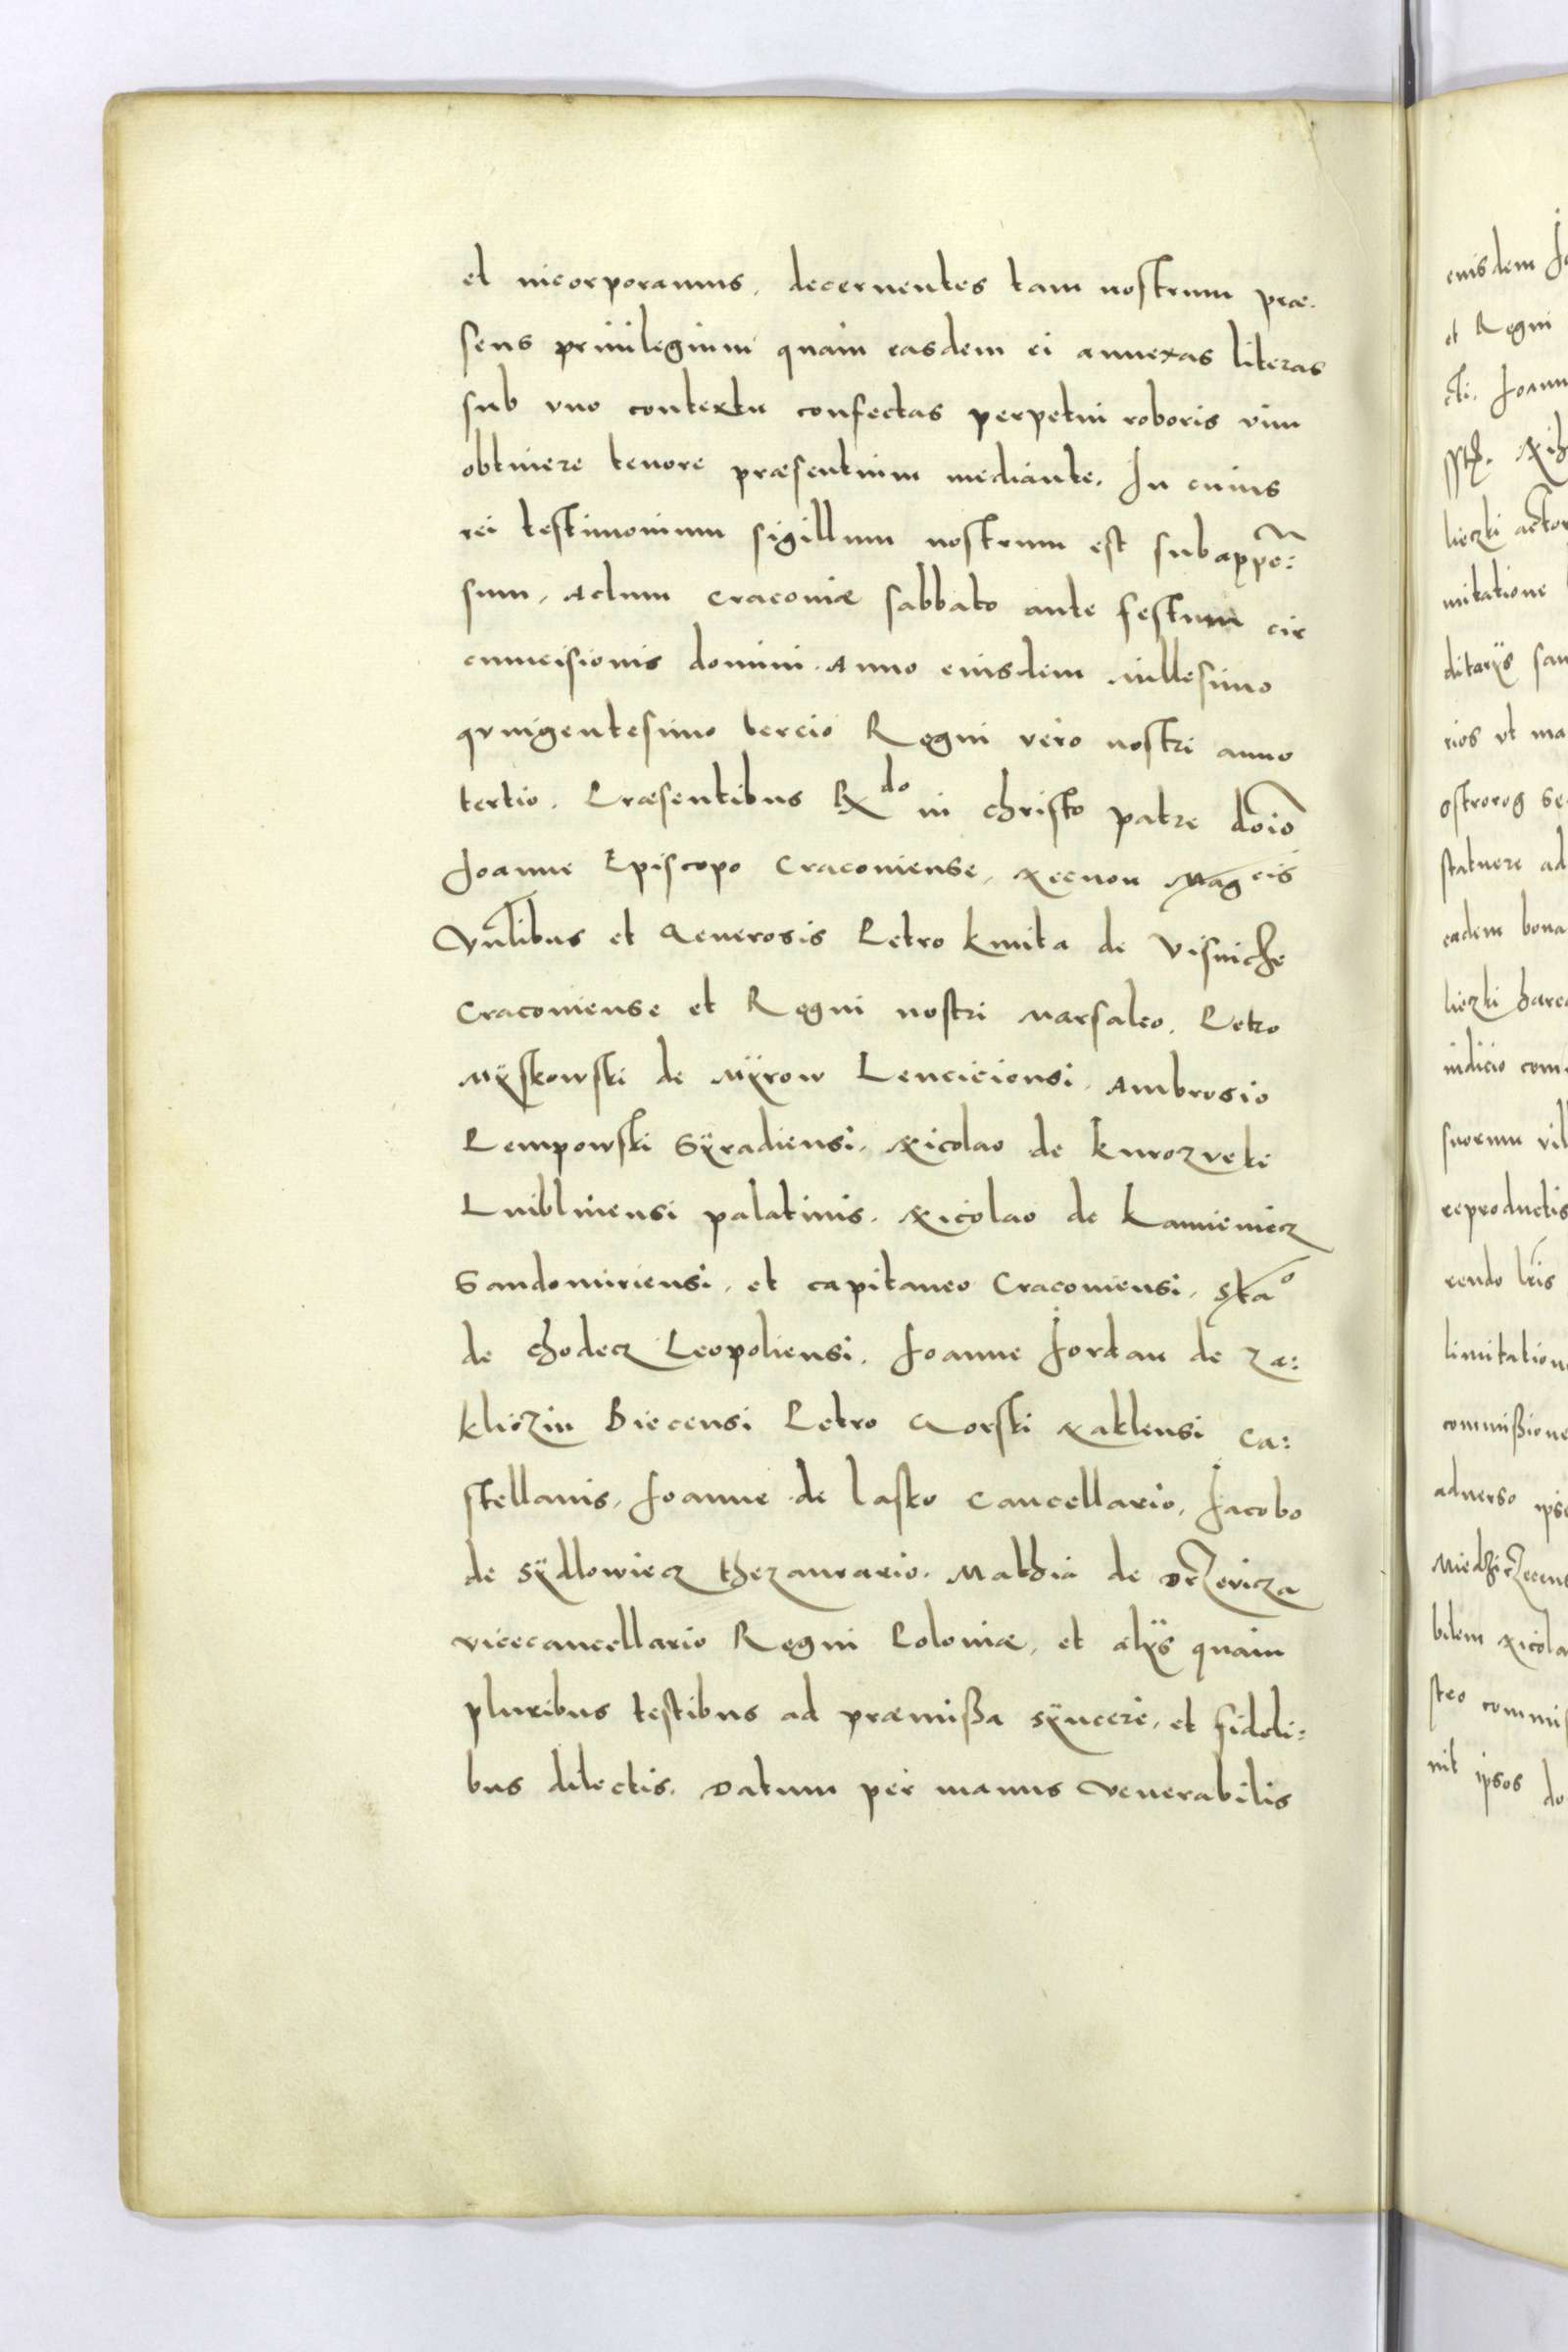 et incorporamus, decernentes tam nostrum præ.
sens priuilegium quam easdem ei annexas literas
sub vno contextu confectas perpetui roboris vim
obtinere tenore præsentium mediante. In cuius
rei testimonium sigillum nostrum est subappē:
sum, Actum Cracouiæ sabbato ante festum cir
cumcisionis domini. Anno eiusdem Millesimo
qvingentesimo tercio Regni vero nostri anno
tertio. Præsentibus Rdo in christo patre doīo
Joanne Episcopo Cracouiense, Necnon Mag cis
Vnlibus et Generosis Petro kmita de Visniche
Cracouiense et Regni nostri Marsalco. Petro
Mÿskowski de Mÿrow Lenciciensi, Ambrosio
Pempowski Sÿradiensi, Nicolao de kurozveki
Luiblinensi palatinis. Nicolao de kamieniecz
Sandomiriensi, et capitaneo Cracouiensi, Stao
de Chodecz Leopoliensi, Joanne Jordan de Za:
kliczin Biecensi Petro Gorski Naklensi Ca:
stellanis, Joanne de lasko Cancellario, Jacobo
de Sÿdlowiecz thezaurario. Mathia de Drzevicza
vicecancellario Regni Poloniæ, et alÿs quam
pluribus testibus ad præmißa sÿncere, et fideli:
bus dilectis. Datum per manus Venerabilis
eiusdem
et Regni
cti. Joann
liczki actor
mitatione
ditarÿs
rios vt ma
ostrorog
statuere ad
eadem bona
liczki
iudicio com
suorum vil
reproductis
rendo lris
limitation
commißione
aduerso ips
bilem Nicola
steo commis
nit ipsos do